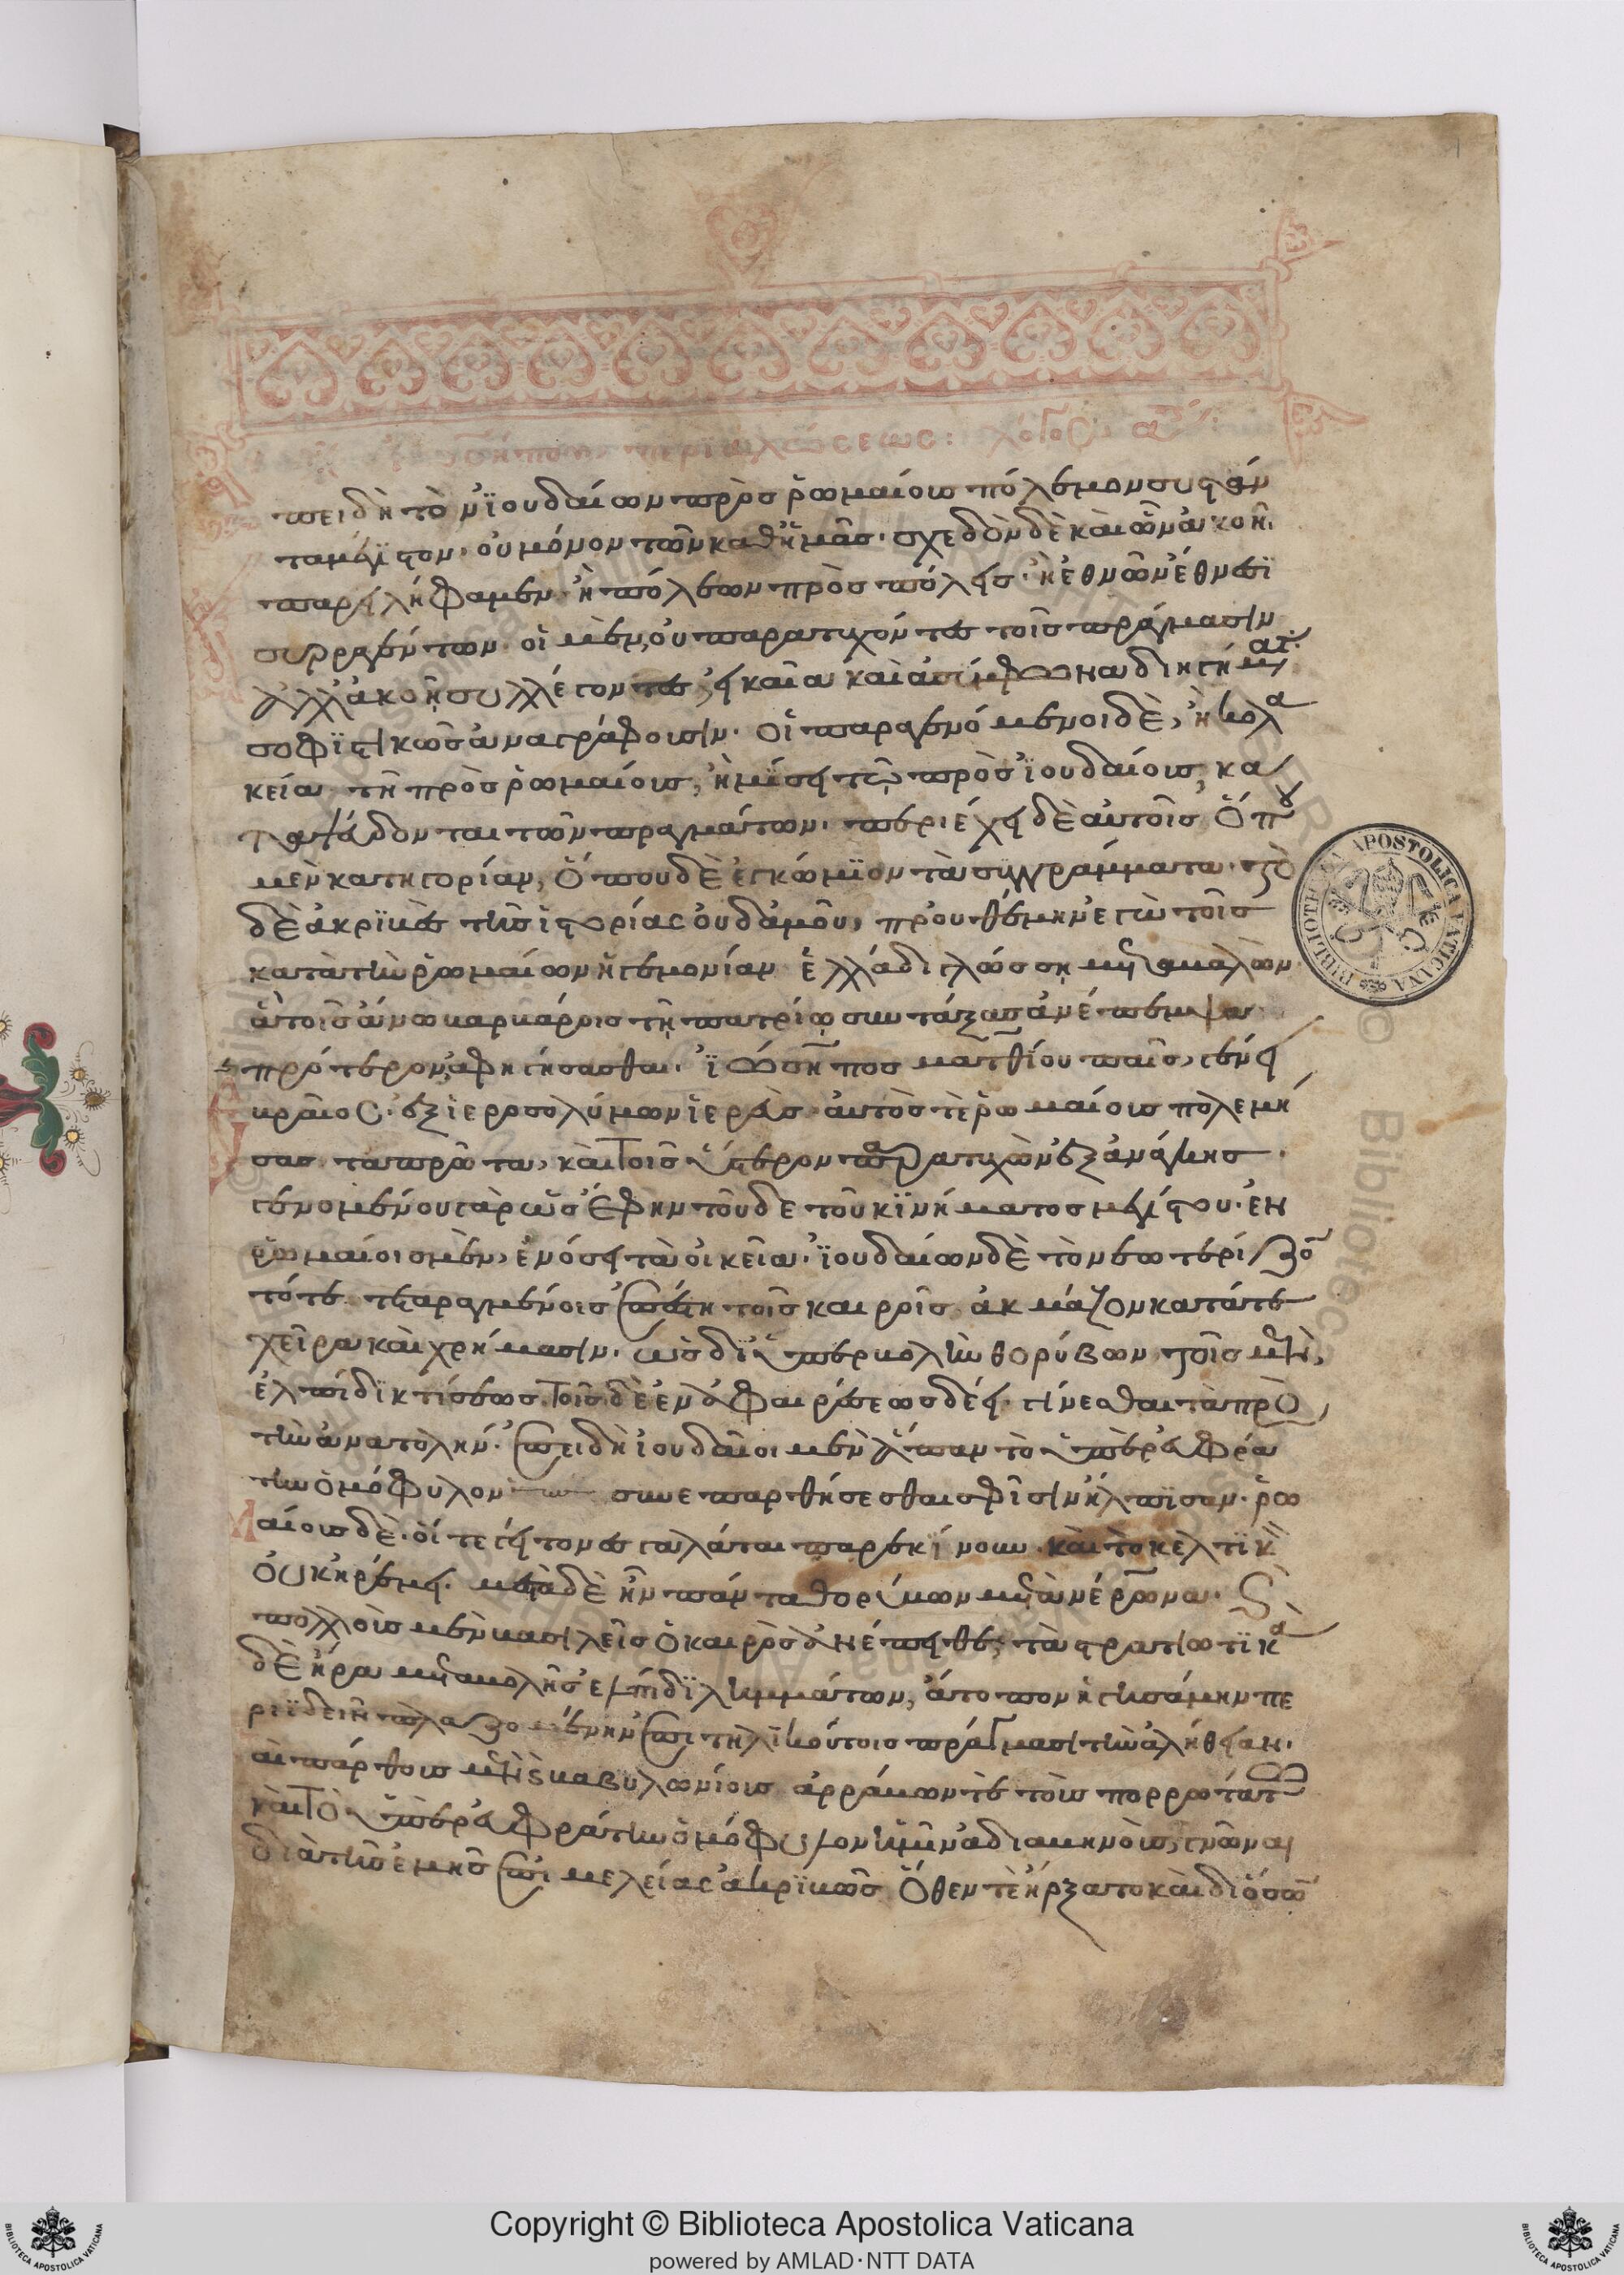 ἰωσήπου περὶ ἁλώσεως: λόγος α
πειδὴ τὸν ἰουδαίων πρὸς ῥωμαίους πόλεμον συστάν
τα μέγιστον· οὐ μόνον τῶν καθ ἡμᾶς· σχεδὸν δὲ καὶ ὧν ἀκοῆ
παρειλήφαμεν· ἢ πόλεων πρὸς πόλεις· ἢ ἐθνῶν ἔθνεσι
συρραγέντων· οἱ μὲν, οὐ παρατυχόντες τοῖς πράγμασιν
ἀλλ ἀκοῆ συλλέγοντες, εἰκαῖα καὶ ἀσύμφωνα διηγήματ
σοφιστικῶς ἀναγράφουσιν· οἱ παραγενόμενοι δὲ, ἢ κολα
κεία τῆ πρὸς ῥωμαίους, ἢ μίσει τῶ πρὸς ἰουδαίους, κα
ταψεύδονται τῶν πραγμάτων· περιέχει δὲ αὐτοῖς, ὅπου
μὲν κατηγορίαν, ὅπου δὲ ἐγκώμιον τὰ συγγράμματα· τὸ
δὲ ἀκριβὲς τῆς ἱστορίας οὐδαμοῦ, προυθέμην ἐγὼ τοῖς
κατὰ τὴν ῥωμαίων ἡγεμονίαν ἑλλάδι γλώσση μεταβαλὼν
ἃ τοῖς ἄνω βαρβάροις τῆ πατρίω συντάξας ἀνέπεμψα
πρότερον, ἀφηγήσασθαι· ἰώσηπος ματθίου παῖς, γένει
ἑβραῖος· ἐξ ἱεροσολύμων ἱερεύς· αὐτός τε ῥωμαίους πολεμή
σας τὰ πρῶτα, καὶ τοῖς ὕστερον παρατυχὼν ἐξ ἀνάγκης·
γενομένου γὰρ ὡς ἔφην τοῦδε τοῦ κινήματος μεγίστου· ἐν
ῥωμαίοις μὲν, ἐνόσει τὰ οἰκεῖα· ἰουδαίων δὲ τὸ νεωτερίζον
τότε τεταραγμένοις ἐπέστη τοῖς καιροῖς ἀκμάζον κατά τε
χεῖρα καὶ χρήμασιν· ὡς δι ὑπερβολὴν θορύβων, τοῖς μὲν,
ἐλπίδι κτίσεως τοῖς δὲ ἐν ἀφαιρέσεως δέει γίνεσθαι τὰ πρὸς
τὴν ἀνατολήν· ἐπειδὴ ἰουδαῖοι μὲν ἅπαν τὸ ὑπὲρ εὐφρά
την ὁμόφυλον συνεπαρθήσεσθαι σφίσιν ἤλπισαν· ῥω
μαίους δὲ· οἵ τε γείτονες γαλάται παρεκίνουν καὶ τὸ κελτικὸν
οὐκ ἠρέμει· μεστὰ δὲ ἦν πάντα θορύβων μετὰ νέρωνα· καὶ
πολλοὺς μὲν βασιλεῖν ὁ καιρὸς ἀνέπειθε, τὰ στρατιωτικὰ
δὲ ἤρα μεταβολῆς ἐλπίδι λημμάτων, ἄτοπον ἡγησάμην πε
ριϊδεῖν πλαζομένην ἐπὶ τηλικούτοις πράγμασι τὴν ἀλήθειαν·
καὶ πάρθους μὲν καὶ βαβυλωνίους ἀρράβων τε τοὺς πορρωτάτω
καὶ τὸ ὑπὲρ εὐφράτην ὁμόφυλον ἡμῖν ἀδιαβηνούς, γνῶναι
διὰ τῆς ἐμῆς ἐπιμελείας ἀκριβῶς ὅθεν τε ἤρξατο καὶ δι ὅσων
BIBLIOTHECA APOSTOLICA VATICANA
Copyright © Biblioteca Apostolica Vaticana
powered by AMLAD·NTT DATA